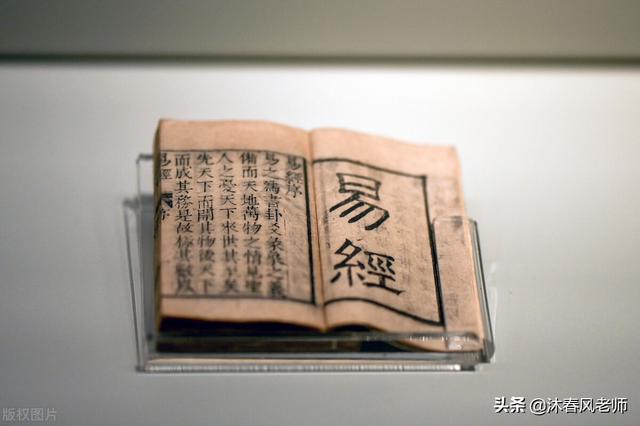 易經
易經序
易之爲書卦爻彖象之義
備而天地萬物之情見聖
人之憂天下來世其至矣
先天下而開其物後天下
而成其務是故極其數以
易經 序
版权图片
头条 @沐春风老师